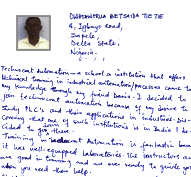 OWHOWHERIA BETSAIDA TIE TIE
4, Igbeyo road,
Sapele,
Delta State,
Nigeria.
Technocrat Automation - a school or institution that offers
technical training in industrial automation/processes came to
my knowledge through my friend Banic. I decided to
join technocrat automation because of my drive to
study PLC's and their applications in industries. Dis-
covering that one of such institutions is in India I de-
cided to join them.
Training in Technocrat Automation is fantastic because
it has well-equipped laboratories. The instructors are
good in training and are ever ready to guide
when you need their help.